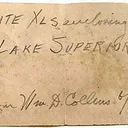 ITE XLS, enclosing
LAKE SUPERIOR
Wm D. Collins